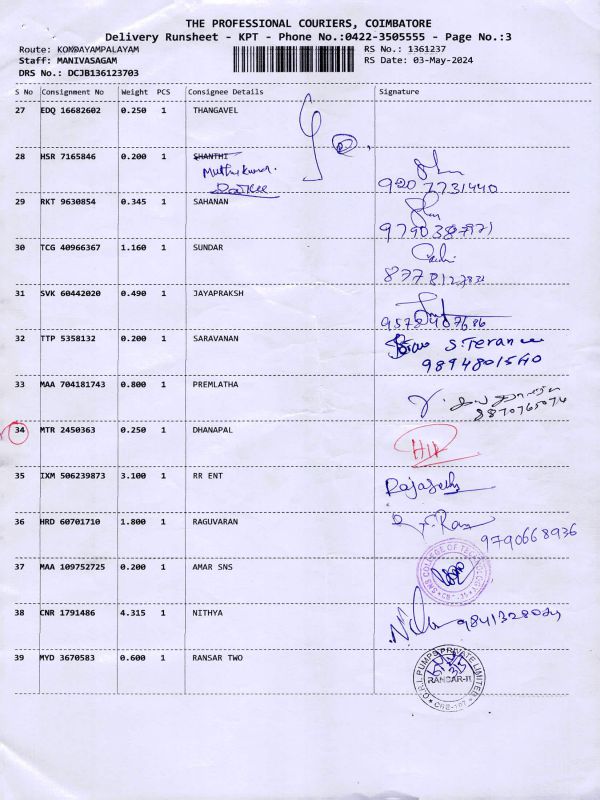 THE PROFESSIONAL COURIERS, COIMBATORE
Delivery Runsheet - KPT - Phone No.:0422-3505555 - Page No.:3
Route: KONDAYAMPALAYAM RS No.: 1361237
Staff: MANIVASAGAM RS Date: 03-May-2024
DRS No.: DCJB136123703
S No Consignment No Weight PCS Consignee Details Signature
27 EDQ 16682602 0.250 1 THANGAVEL
28 HSR 7165846 0.200 1 SHANTHI
Muthukumar.
29 RKT 9630854 0.345 1 SAHANAN
30 TCG 40966367 1.160 1 SUNDAR
31 SVK 60442020 0.490 1 JAYAPRAKSH
32 TTP 5358132 0.200 1 SARAVANAN S.Terance
33 MAA 704181743 0.800 1 PREMLATHA
8870765074
34 MTR 2450363 0.250 1 DHANAPAL
35 IXM 506239873 3.100 1 RR ENT
36 HRD 60701710 1.800 1 RAGUVARAN
9790668936
37 MAA 109752725 0.200 1 AMAR SNS
SNS COLLEGE OF TECHNOLOGY
CBE-35
38 CNR 1791486 4.315 1 NITHYA
39 MYD 3670583 0.600 1 RANSAR TWO
PUMPS PRIVATE LIMITED
RANSAR-II
CBE-107